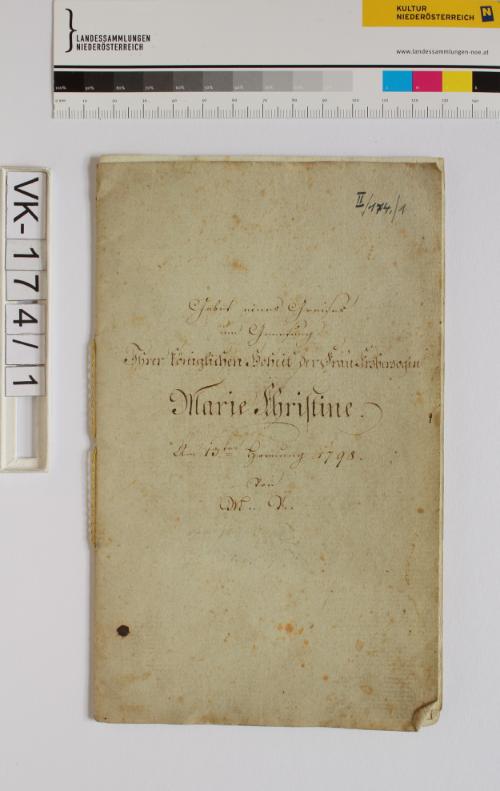 LANDESSAMMLUNGEN
NIEDERÖSTERREICH
KULTUR
NIEDERÖSTERREICH N
www.landessammlungen-noe.at
VK-174/1
II/174./1
Gebet eines Greises
um Genesung
Ihrer Königlichen Hoheit der Frau Erzherzogin
Marie Christine.
Am 13ten Hornung 1798.
Von
M.. V..